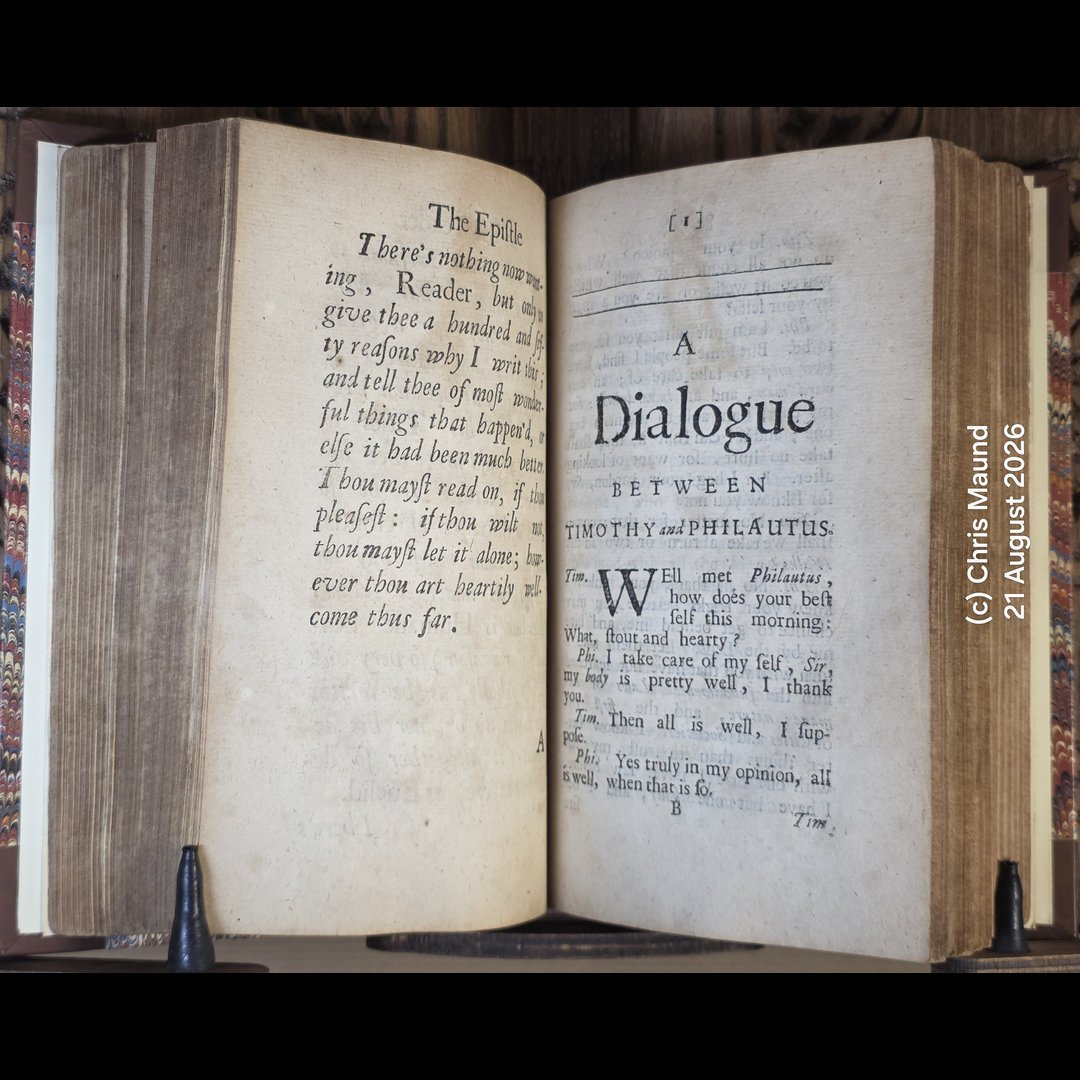 The Epiſtle
There's nothing now want-
ing, Reader, but only to
give thee a hundred and fif-
ty reaſons why I writ this;
and tell thee of moſt wonder-
ful things that happen'd, or
elſe it had been much better.
Thou mayſt read on, if thou
pleaſeſt: if thou wilt not,
thou mayſt let it alone; how-
ever thou art heartily well-
come thus far.
A
[1]
A
Dialogue
BETWEEN
TIMOTHY and PHILAUTUS.
Tim. WEll met Philautus,
how does your beſt
ſelf this morning:
What, ſtout and hearty?
Phi. I take care of my ſelf, Sir,
my body is pretty well, I thank
you.
Tim. Then all is well, I ſup-
poſe.
Phi. Yes truly in my opinion, all
is well, when that is ſo.
B
Tim.
(c) Chris Maund
21 August 2026